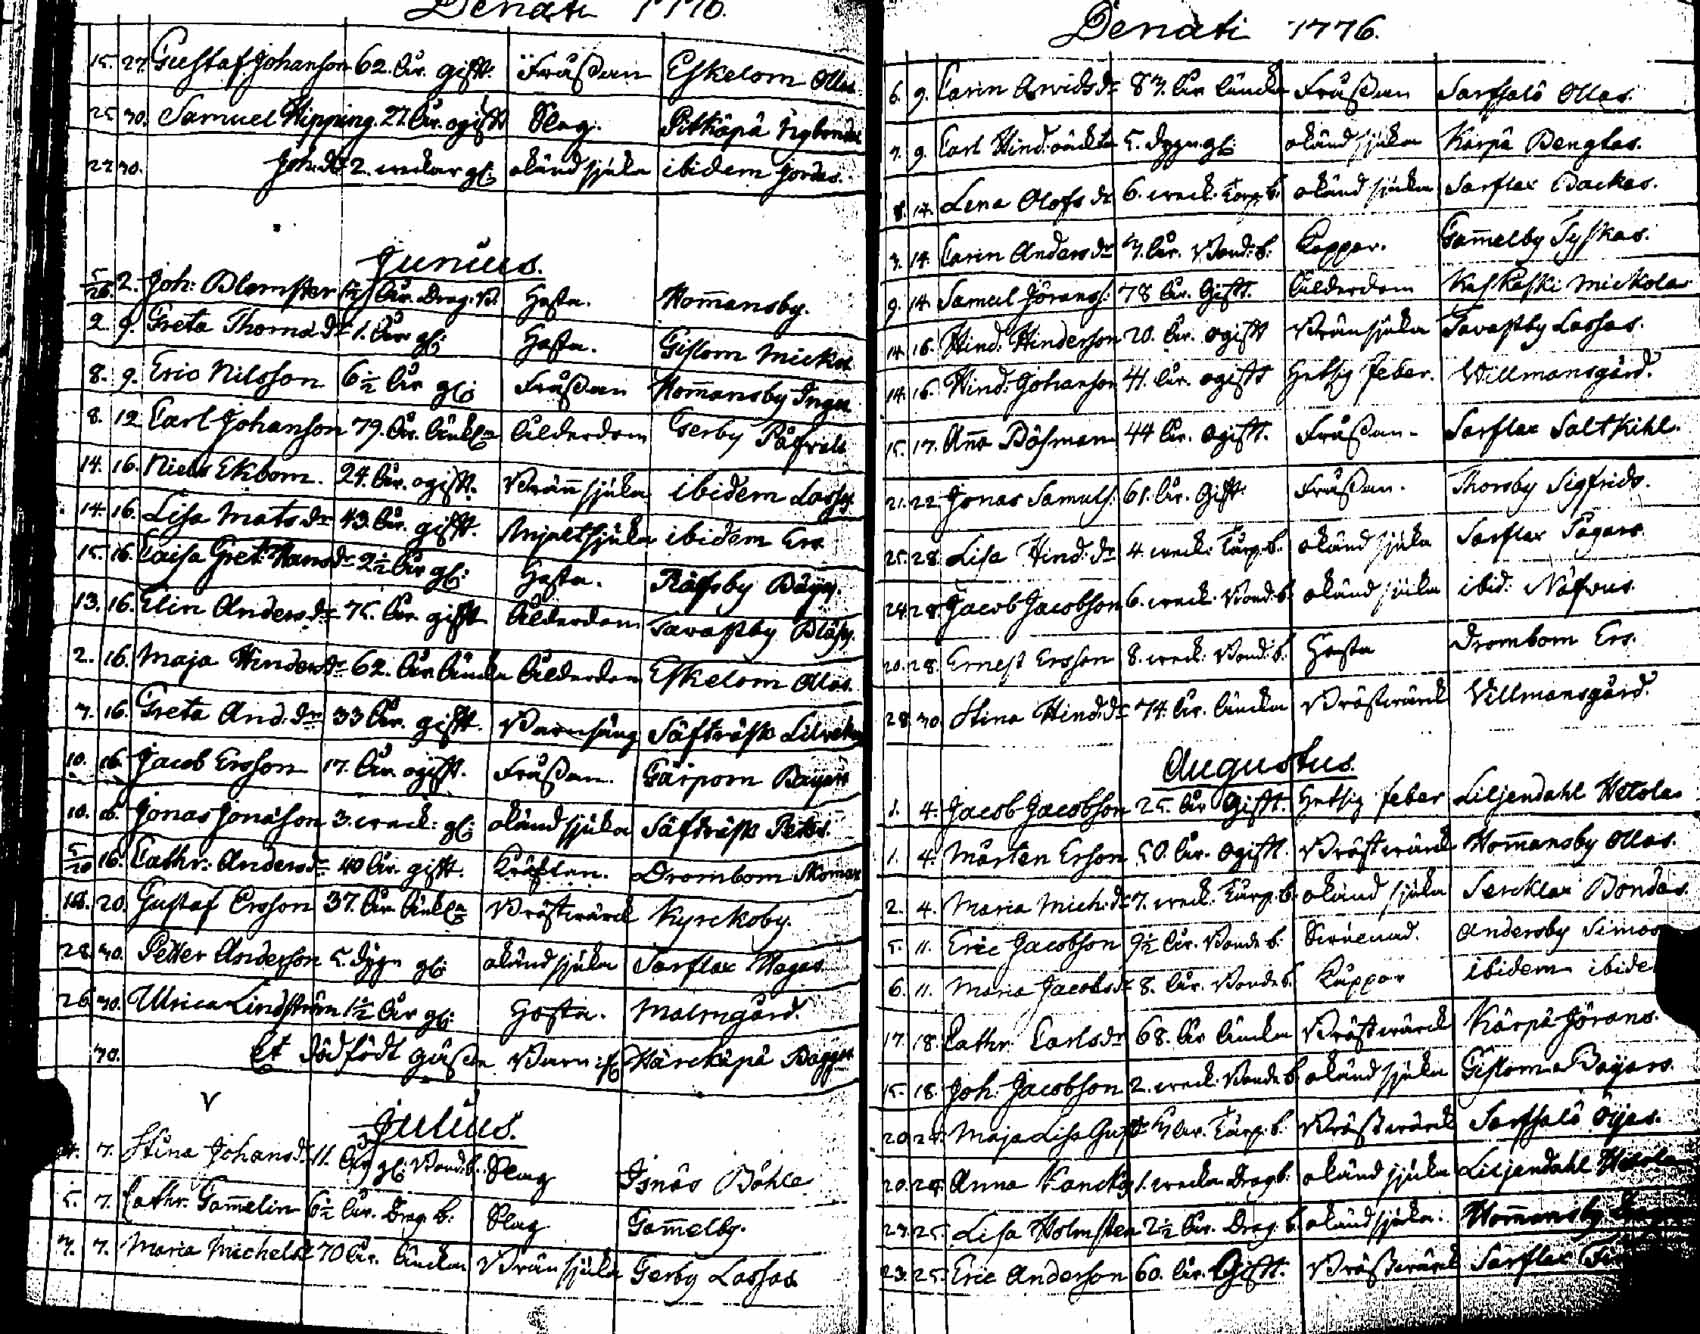 Denati 1776.
15. 27. Gustaf Johanson 62. Åår. gift. Fråssan Eskelom Ollas.
25 30. Samuel Hipping 27. Åår. ogift Slag. Pitkäpä Nybondas
27 30. Joh: dr 2. weckor gl: okänd sjuka ibidem Jordas.
Junius.
5/26 2. Joh: Blomster Åår. Drag. b. Hosta. Hommansby.
2 9. Greta Thoma dr 1. Åår gl: Hosta. Gislom Mickos
8. 9. Eric Nilsson 6 1/2 Åår gl: Fråssan Hommansby Inges
8. 12 Carl Johanson 79. Åår. Änkl: Ålderdom Gerby Påfvals
14. 16. Niels Ekbom. 24. Åår. ogift. Brännsjuka ibidem Lassas
14. 16. Lisa Mats dr 43. Åår. gift. Mjältsjuka ibidem Ers
15. 16. Caisa Gret. Hans dr 2 1/2 Åår gl: Hosta. Räfsby Bäyars
13. 16. Elin Anders dr 75. Åår. gift Ålderdom Tavastby
2. 16. Maja Hinders dr 62. Åår Äncka Ålderdom Eskelom Ollas.
7. 16. Greta And. dr 33 Åår. gift. Barnsäng Säfträsk
10. 16. Jacob Ersson 17. Åår. ogift. Fråssan. Gärpom Bayars
10. 16. Jonas Jonason 3. weck: gl: okänd sjuka Säfträsk Peters.
5/10 16. Cathr: Anders dr 40 Åår. gift. Kräftan. Drombom Skomars
18. 20. Gustaf Ersson 37. Åår. Änkl: Bröstwärck Kyrckoby.
28. 30. Petter Anderson 5. dygn gl: okänd sjuka Sarflax Hagas
26. 30. Ulrica Lindström 1 1/2 Åår gl: Hosta. Malmgård.
30. Et dödfödt gåsse Barn Härckäpä Bagges
Julius.
7. Stina Johans dr 11. Åår gl: Bond. b. Slag Isnäs Böhle
5. 7. Cathr. Gammelin 6 1/2 Åår. Drag. b. Slag Gammelby.
7. 7. Maria Michels dr 70 Åår. Äncka Brännsjuka Gerby Lassas
Denati 1776.
6. 9. Carin Arvids dr 87. Åår Äncka Fråssan Sarfsalö Ollas.
7. 9. Carl Hind. oäckta 5. dygn gl: okänd sjuka Kärpä Bengtas.
8. 14. Lena Olofs dr 6. weck: Torp. b. okänd sjuka Sarflax Backas.
7. 14. Carin Anders dr 7. Åår. Bond. b. Koppor. Gammelby Tyskas.
9. 14. Samuel Jörans: 78 Åår. Gift. Ålderdom Kuskoski Mickolas
14 16. Hind. Hinderson 20. Åår. ogift Brännsjuka Tavastby Lassas.
14. 16. Hind. Johanson 41. Åår. ogift Hetsig feber. Willmansgård.
15. 17. Anna Bösman 44 Åår. ogift. Fråssan. Sarflax Saltkihl.
21. 22 Jonas Samuls. 61. Åår. Gift. Fråssan. Thorsby Sigfrids.
25. 28. Lisa Hind. dr 4. weck: Torp. b. okänd sjuka Sarflax Pågars.
24. 28. Jacob Jacobson 6. weck: Bond. b. okänd sjuka ibid: Näfvers.
20. 28. Ernest Ersson 8. weck: Bond: b. Hosta Drombom Ers.
28. 30. Stina Hind. dr 74. Åår. Äncka Bröstwärck Willmansgård.
Augustus.
1. 4. Jacob Jacobson 25. Åår Gift. Hetsig feber Liljendahl Hetolas
1. 4. Mårten Erson 50. Åår. ogift. Bröstwärck Hommansby Ollas.
2. 4. Maria Mich: dr 7. weck. Torp. b. okänd sjuka Sercklax Bondas.
5. 11. Eric Jacobson 9 1/2 Åår. Bonde b. Andersby Simos
6. 11. Maria Jacobs dr 8. Åår. Bonde b. Kåppor ibidem ibidem
17. 18. Cathr Carls dr 68. Åår Äncka Bröstwärck Kärpä Jörans.
15. 18. Joh: Jacobson 2. weck: Bonde b. okänd sjuka Gislom Bayars.
20. Maja Lisa Gust. Åår. Torp. b. Bröstwärck Sarfsalö Öijas.
20. Anna 1. wecka Drag. b. okänd sjuka Liljendahl
23. 25. Lisa Holmsten 2 1/2 Åår. Drag. b. okänd sjuka. Hommansby
23. 25. Eric Anderson 60. Åår. Gift. Bröstwärck Sarflax